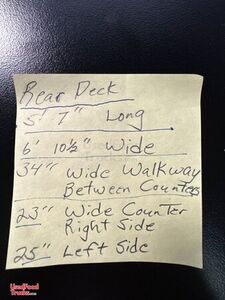 Rear Deck
5' 7" Long
6' 10½" Wide
34" Wide Walkway
Between Counters
23" Wide Counter
Right Side
25" Left Side
UsedFood
Trucks.com